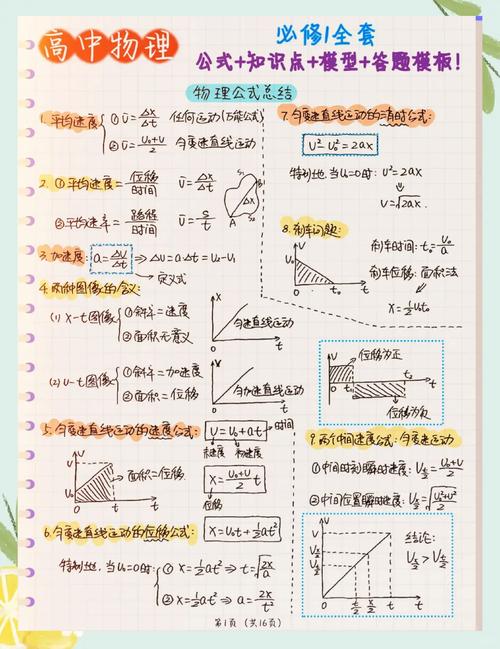 高中物理
必修1全套
公式+知识点+模型+答题模板!
物理公式总结
1. 平均速度
① ῡ=Δx/Δt 任何运动(万能公式)
② ῡ=(U₀+U)/2 匀变速直线运动
2. ①平均速度=位移/时间 ῡ=Δx/Δt
②平均速率=路程/时间 ῡ=s/t
A
B
3. 加速度: a=ΔU/Δt ⇒ ΔU=a·Δt=Ut-U₀
→定义式
4. 两种图像的含义:
(1) x-t图像 ①斜率=速度
②面积无意义
x
匀速直线运动
t
(2) υ-t图像 ①斜率=加速度
②面积=位移
匀加速直线运动
t
5. 匀变速直线运动的速度公式: U=U₀+at →时间
末速度 初速度
面积=位移
x=(U₀+U)/2·t
位移
6. 匀变速直线运动的位移公式: x=U₀t+½at²
特别地,当U₀=0时: ① x=½at² ⇒ t=√(2x/a)
② x=½at² ⇒ a=2x/t²
7. 匀变速直线运动的消时公式:
U²-U₀²=2ax
特别地,当U₀=0时: υ²=2ax
υ=√2ax
8. 刹车问题:
刹车时间: t₀=U₀/a
刹车位移: 面积法
x=½U₀t₀
位移为正
位移为负
9. 两个中间速度公式: 匀变速运动
①中间时刻瞬时速度: U_(t/2)=(U₀+U)/2
②中间位置瞬时速度: U_(x/2)=√((U₀²+U²)/2)
结论:
U_(x/2)>U_(t/2)
第1页 (共16页)